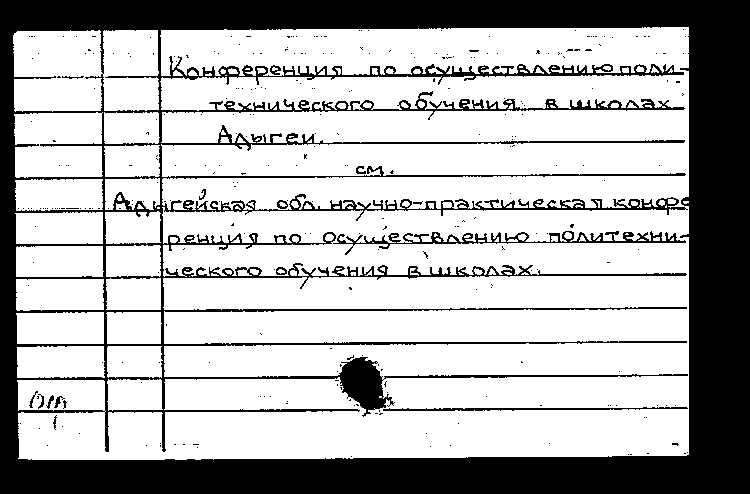 Конференция по осуществлению поли-
технического обучения в школах
Адыгеи.
см.
Адыгейская обл. научно-практическая конфе
ренция по осуществлению политехни-
ческого обучения в школах.